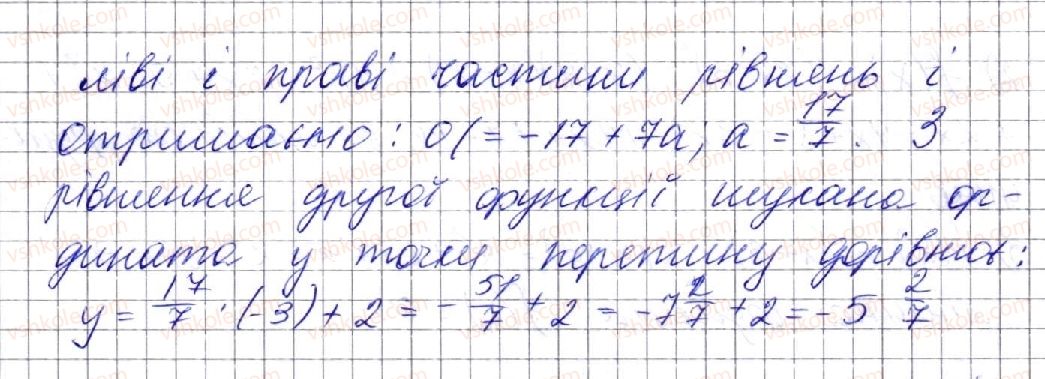 ліві і праві частини рівнянь і
отримаємо: 0 = -17 + 7a; a = 17/7. З
рівняння другої функції шукана ор-
дината y точки перетину дорівнює:
y = 17/7 · (-3) + 2 = - 51/7 + 2 = -7 2/7 + 2 = -5 2/7